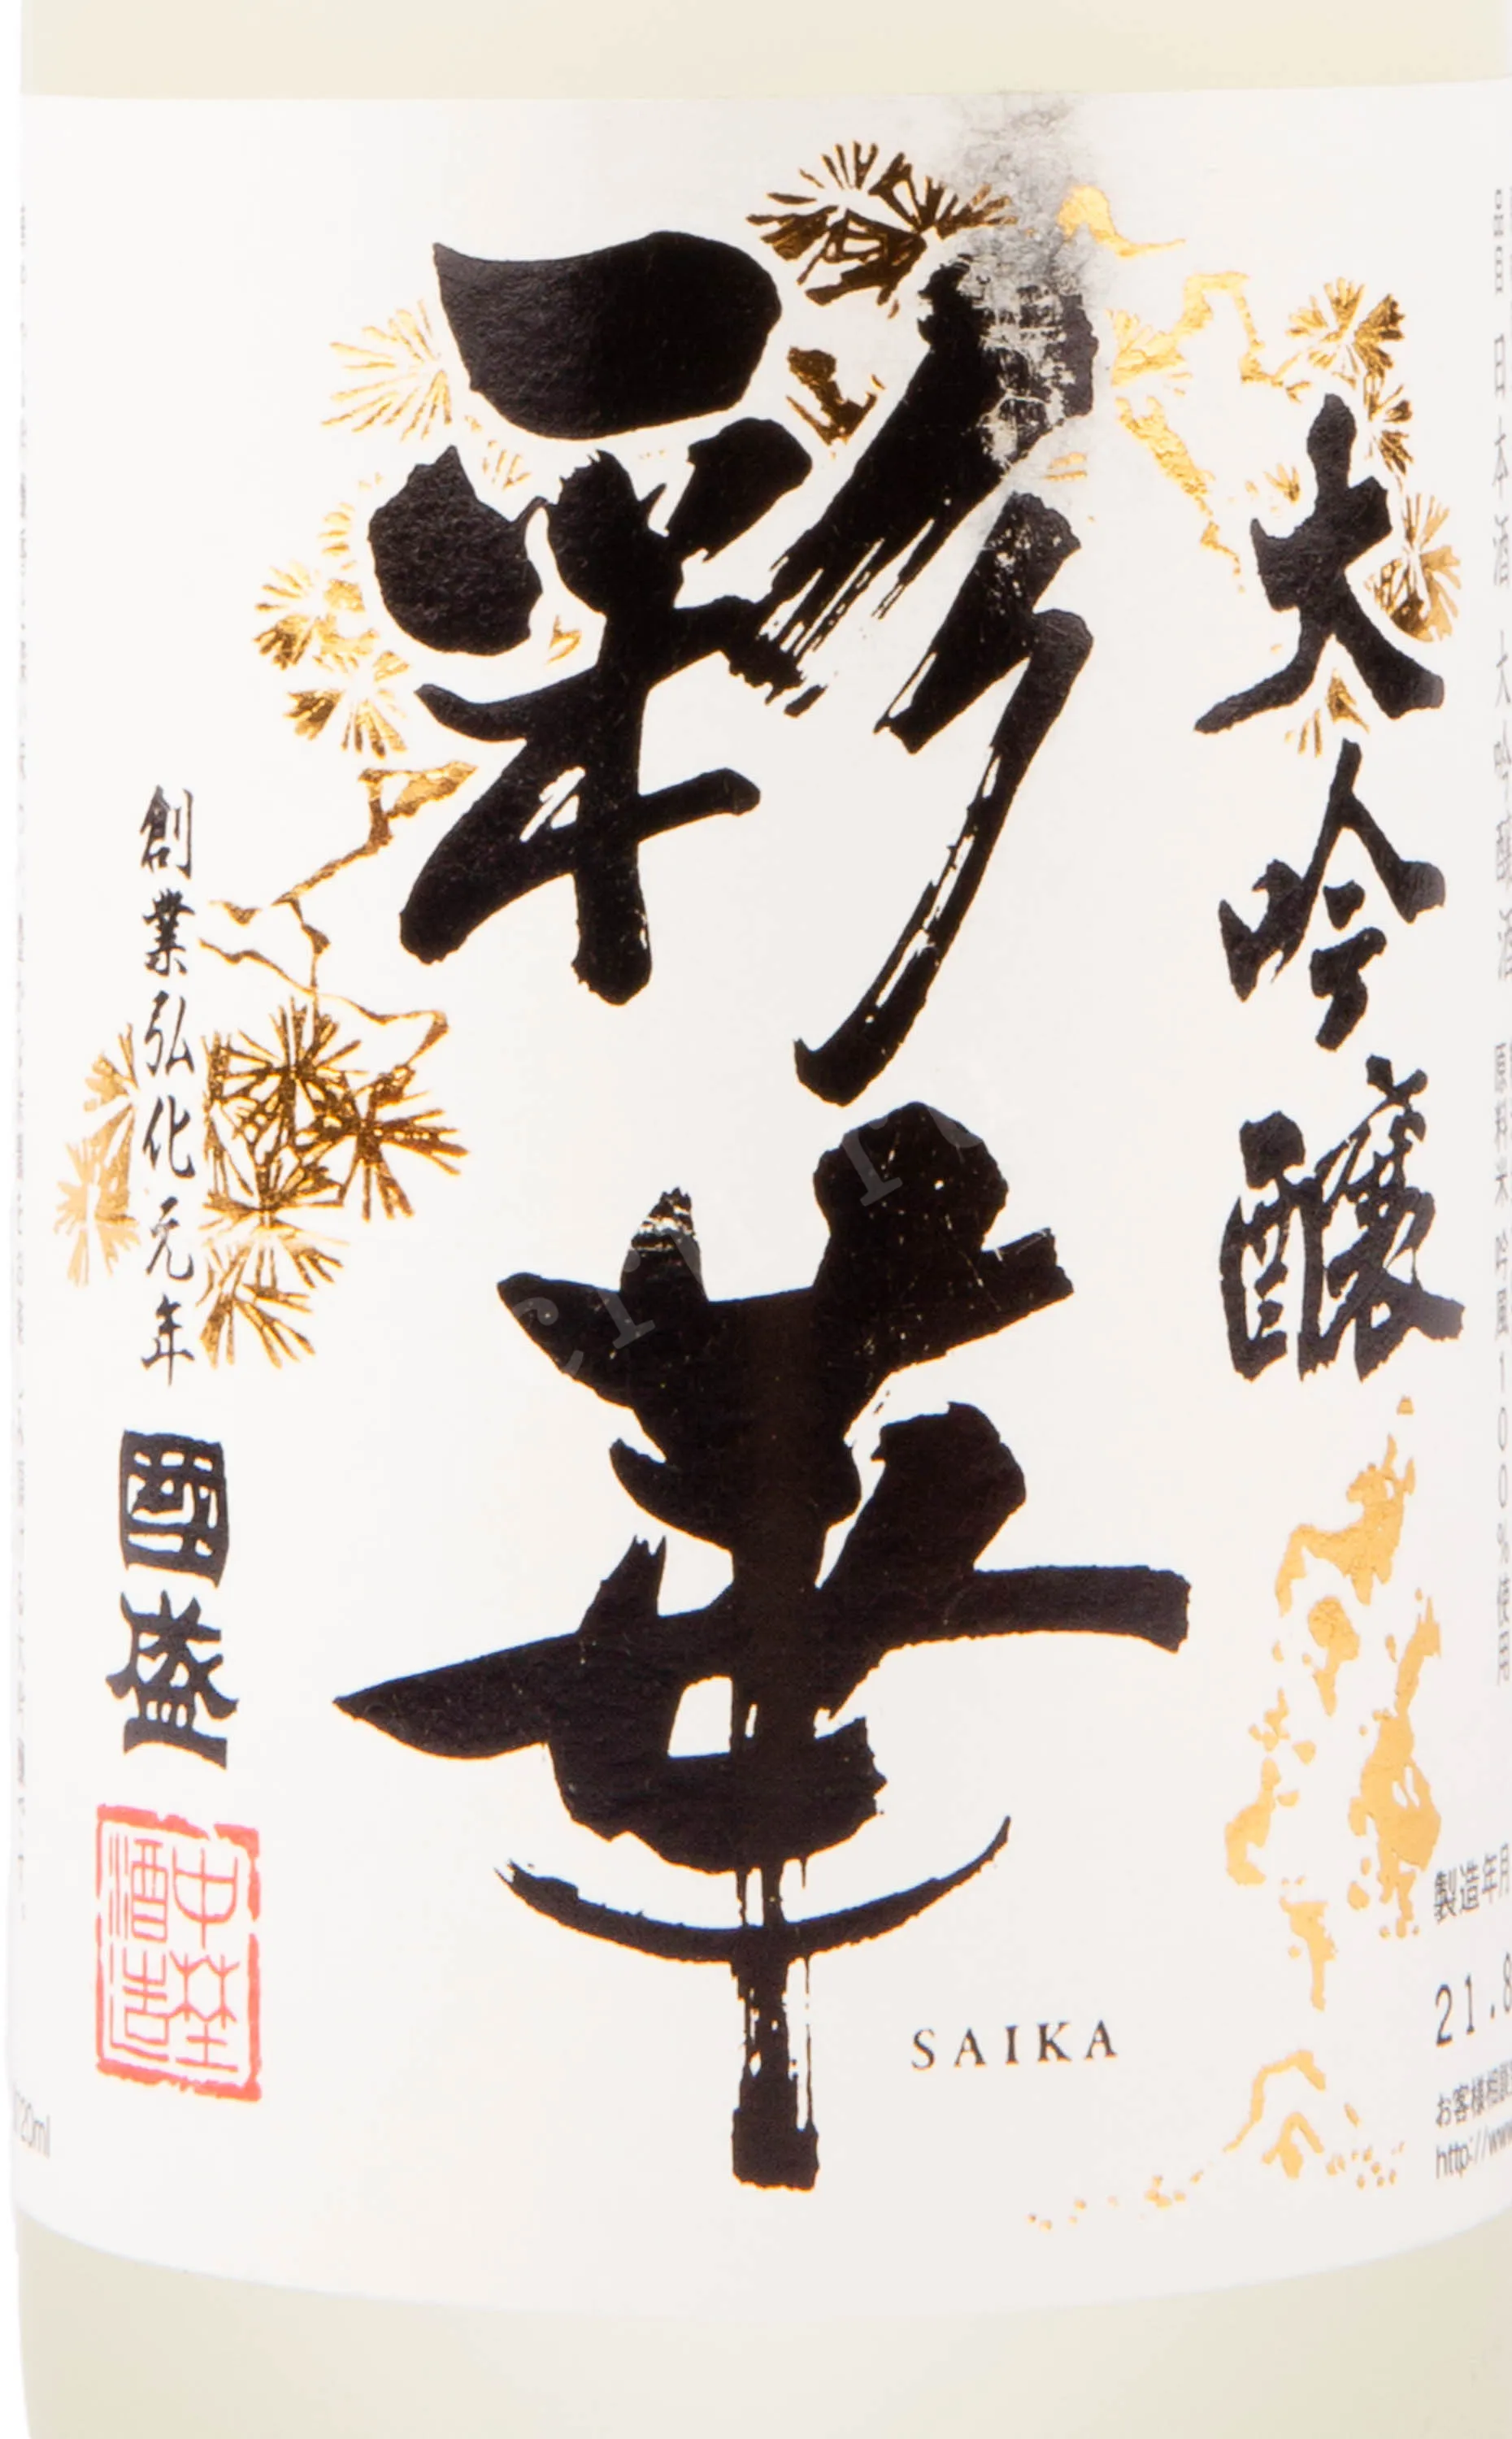 彩華
大吟醸
品目 日本酒 大吟醸酒 原料米 吟風100%使用
創業弘化元年
國盛
中埜
酒造
SAIKA
製造年月
21.8
お客様相談
http://www
720ml